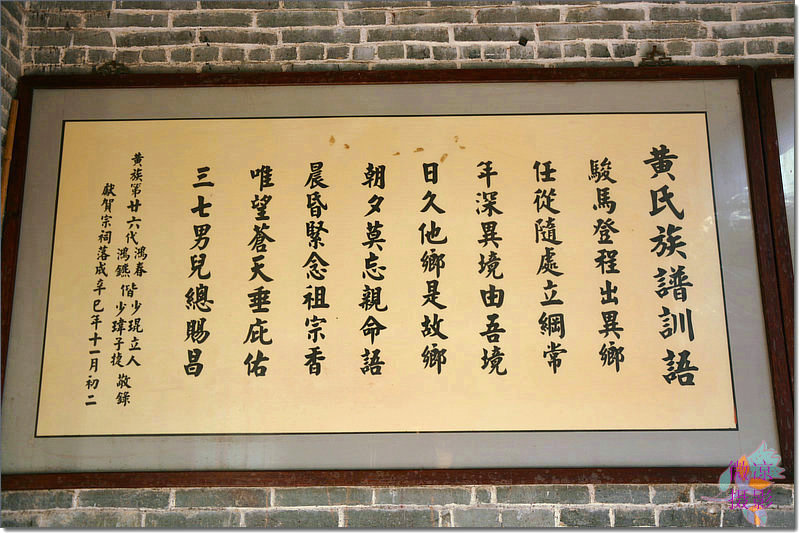 黄氏族譜訓語
駿馬登程出異鄉
任從隨處立綱常
年深異境由吾境
日久他鄉是故鄉
朝夕莫忘親命語
晨昏緊念祖宗香
唯望蒼天垂庇佑
三七男兒總賜昌
黄族第廿六代鴻春鴻燕偕少琨少瑋立人子捷敬錄
獻賀宗祠落成辛巳年十一月初二
傲凉
摄影